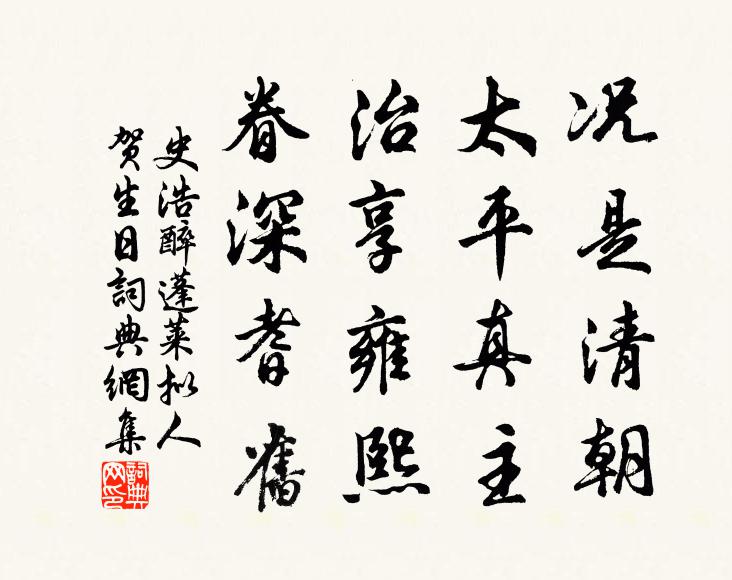 况是清朝
太平真主
治享雍熙
眷深耆旧
史浩醉蓬莱拟人
贺生日詞典網集
詞典网印